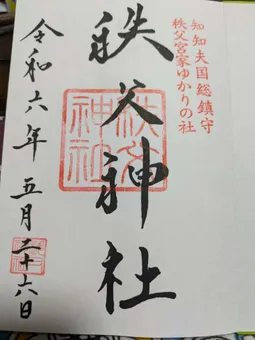 知知夫国総鎮守
秩父宮家ゆかりの社
秩父神社
秩父
神社
令和六年五月二十六日